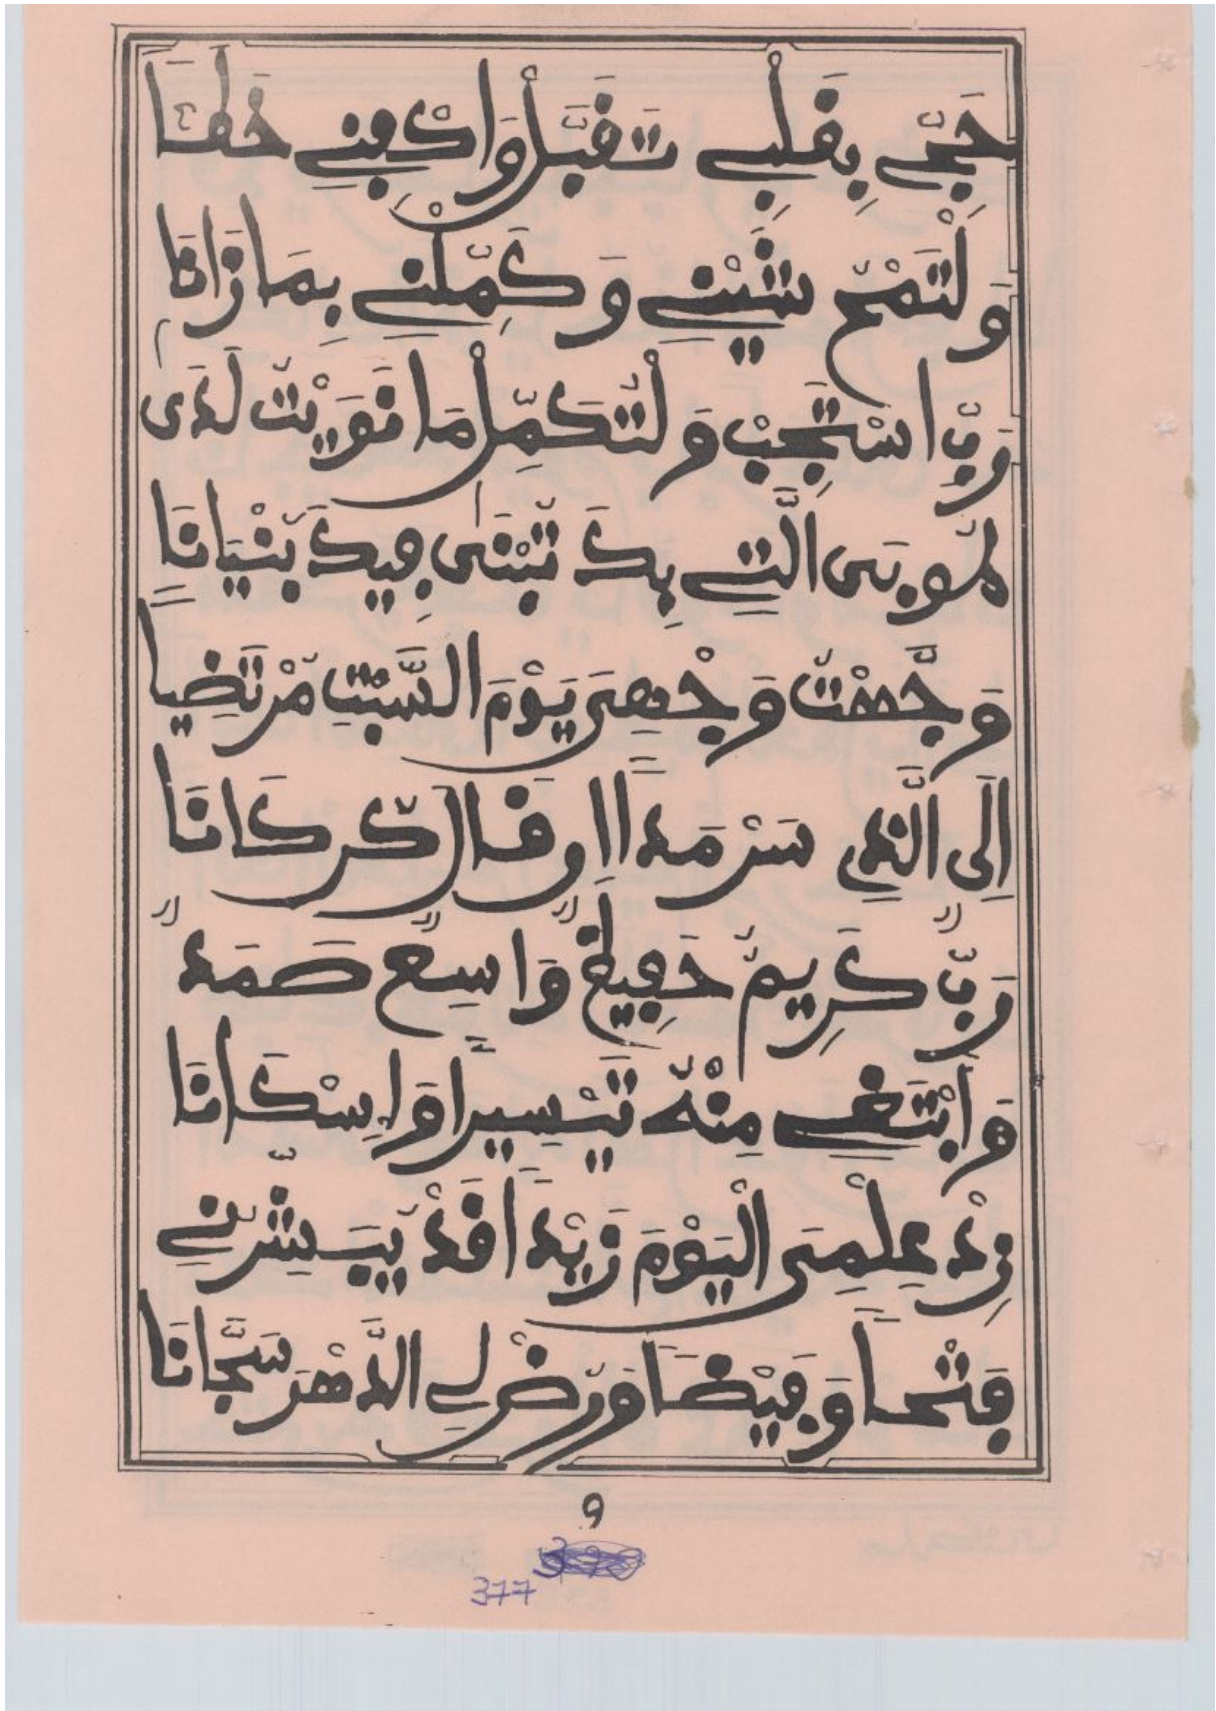 حَجِّى بِقَلْبِى تَقَبَّلْ وَاكْفِنِى خَطَأَ
وَلْتَمْحُ شَيْنِى وَكَمِّلْنِى بِمَا زَانَا
رَبِّ اسْتَجِبْ وَلْتُكَمِّلْ مَا نَوَيْتُ لَدَى
طُوبَى الَّتِى بِكَ تُبْنَى فِيكَ بُنْيَانًا
وَجَّهْتُ وَجْهِىَ يَوْمَ السَّبْتِ مُرْتَضِيا
إِلَى الَّذِى سَرْمَدًا أَوْ قَالَ كُنْ كَانَا
رَبٌّ كَرِيمٌ حَفِيظٌ وَاسِعٌ صَمَدٌ
وَأَبْتَغِى مِنْهُ تَيْسِيرًا وَإِسْكَانَا
زِدْ عِلْمِىَ الْيَوْمَ زَيْدًا قَدْ يُبَشِّرُنِى
فَتْحاً وَفَيْضًا وَرُضْ لِى الدَّهْرَ سَجَّانَا
9
377